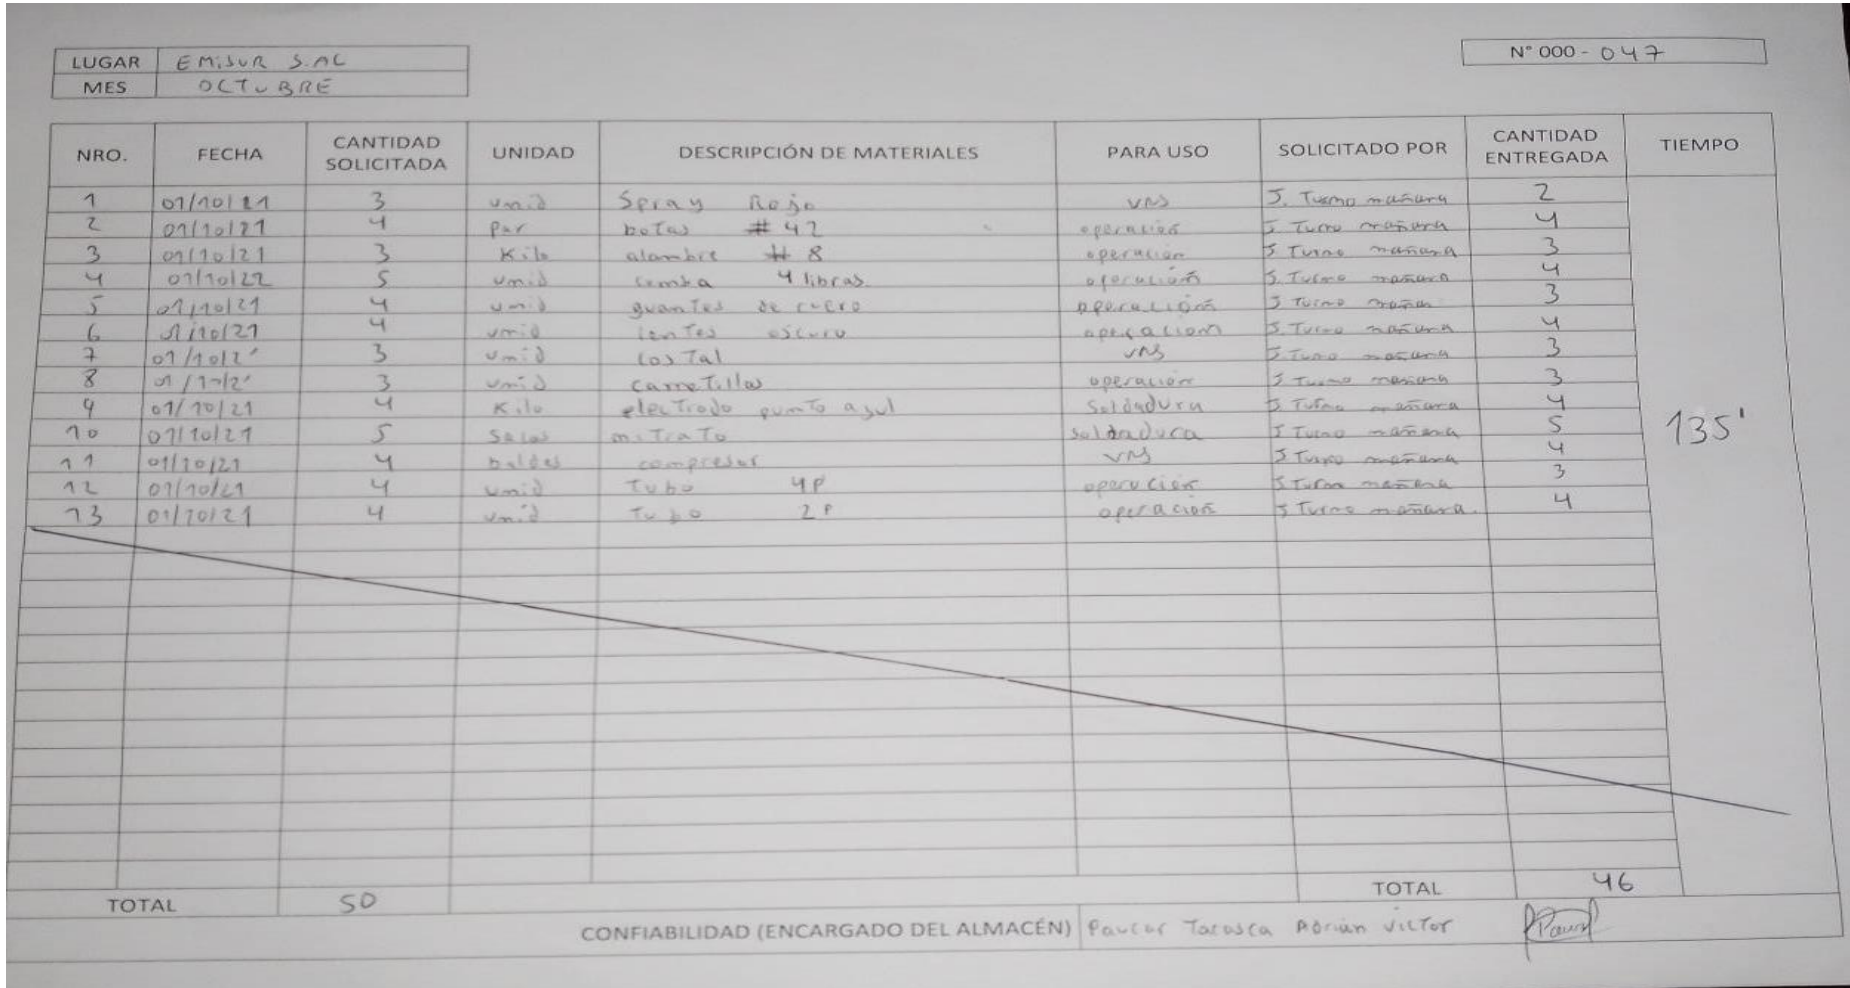 LUGAR EMISUR S.AC
MES OCTUBRE
N° 000 - 047
NRO. FECHA CANTIDAD SOLICITADA UNIDAD DESCRIPCIÓN DE MATERIALES PARA USO SOLICITADO POR CANTIDAD ENTREGADA TIEMPO
1 01/10/21 3 unid Spray Rojo VNS J. Turno mañana 2
2 01/10/21 4 par botas # 42 operación J. Turno mañana 4
3 01/10/21 3 Kilo alambre # 8 operación J. Turno mañana 3
4 01/10/22 5 unid comba 4 libras operación J. Turno mañana 4
5 01/10/21 4 unid guantes de cuero operación J. Turno mañana 3
6 01/10/21 4 unid lentes oscuro operacion J. Turno mañana 4
7 01/10/2 3 unid costal VNS J. Turno mañana 3
8 01/10/2 3 unid carretillas operación J. Turno mañana 3
9 01/10/21 4 Kilo electrodo punto azul Soldadura J. Turno mañana 4
10 01/10/21 5 nitrato soldadura J. Turno mañana 5
11 01/10/21 4 baldes compresor VNS J. Turno mañana 4
12 01/10/21 4 unid Tubo 4P operación J. Turno mañana 3
13 01/10/21 4 unid Tubo 2P operación J. Turno mañana. 4
135'
TOTAL 50 TOTAL 46
CONFIABILIDAD (ENCARGADO DEL ALMACÉN) Paucar Adrián Victor